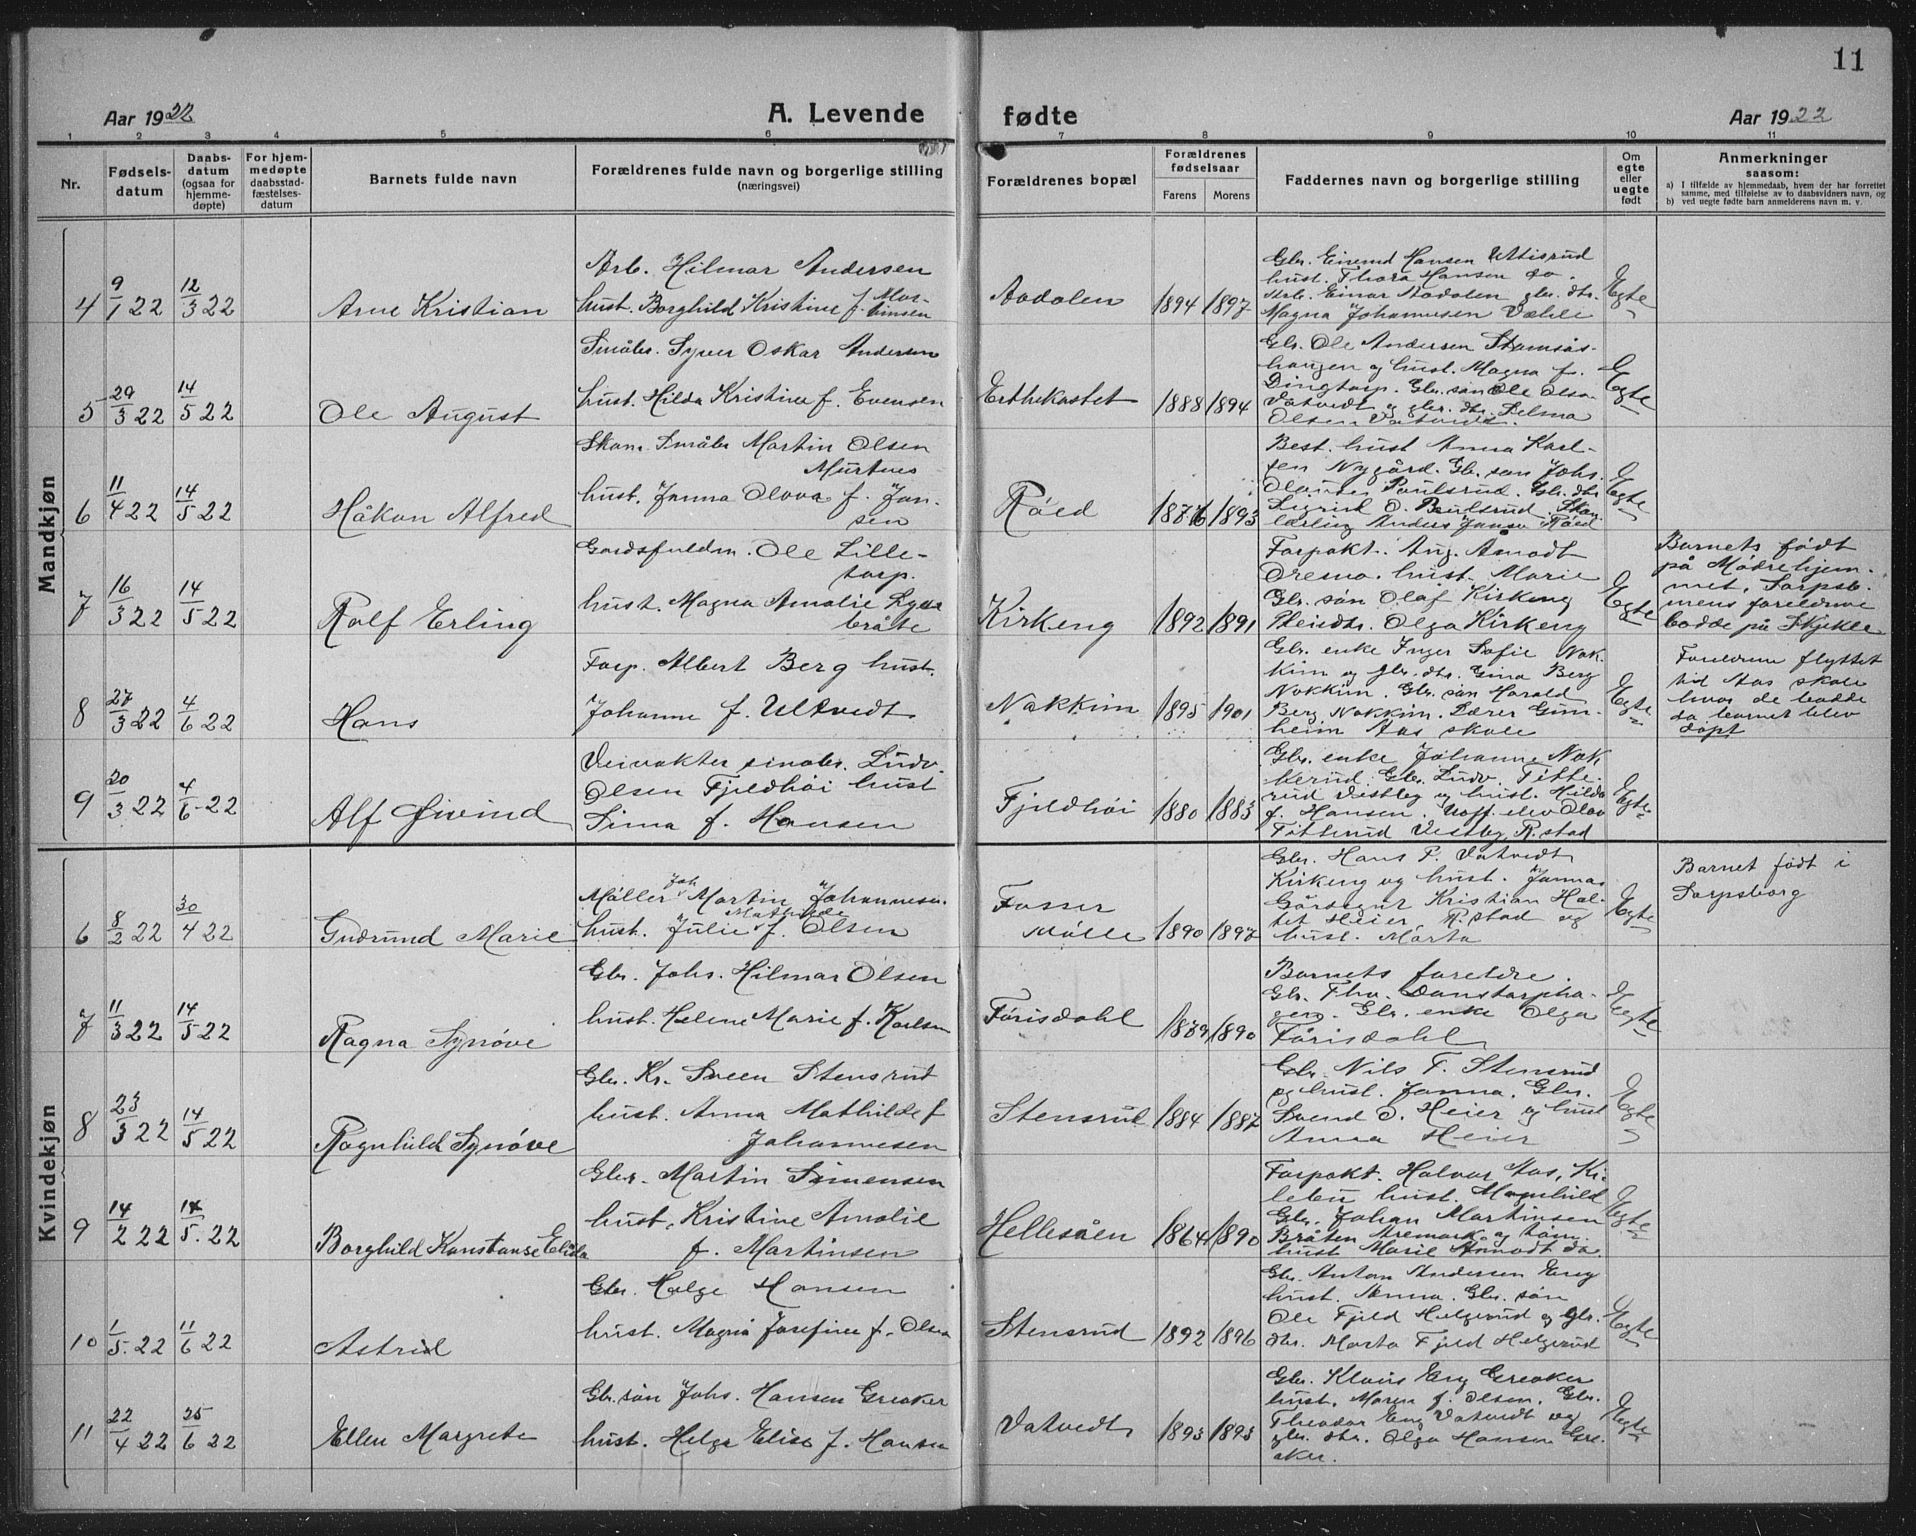 11
Aar 1922
A. Levende
fødte
Aar 1922
1 2 3 4 5 6 7 8 9 10 11
Nr.
Fødsels-
datum
Daabs-
datum
(ogsaa for
hjemme-
døpte)
For hjem-
medøpte
daabsstad-
fæstelses-
datum
Barnets fulde navn
Forældrenes fulde navn og borgerlige stilling
(næringsvei)
Forældrenes bopæl
Forældrenes
fødselsaar
Farens
Morens
Faddernes navn og borgerlige stilling
Om
egte
eller
uegte
født
Anmerkninger
saasom:
a) I tilfælde av hjemmedaab, hvem der har forrettet
samme, med tilføielse av to daabsvidners navn, og
b) ved uegte fødte barn anmelderens navn m. v.
Mandkjøn
4
9/1 22
12/3 22
Arne Kristian
Arb. Hilmar Andersen
hust. Borghild Kristine f. Mar-
tinsen
Aadalen
1894 1897
Gbr. Eivind Hansen Ultisrud
hust. Thora Hansen do.
Arb. Einar Aadalen gbr. dtr.
Magna Johannesen Væhle
Egte
5
29/3 22
14/5 22
Ole August
Småbr. Syver Oskar Andersen
hust. Hilda Kristine f. Evensen
Erthekastet
1888 1894
Gbr. Ole Andersen Stomsås-
haugen og hust. Magna f.
Dingtorp. Gbr. søn Ole Olsen
Vatvedt og gbr. dtr. Selma
Olsen Vatvedt.
Egte
6
11/4 22
14/5 22
Håkon Alfred
Skom. Småbr Martin Olsen
Murtnes
hust. Janna Olava f. Jan-
sen
Røed
1876 1893
Best. hust Anna Karl-
sen Nygård. Gbr. søn Johs.
Olausen Paulsrud. Gbr. dtr
Sigrid O. Paulsrud. Skom.
lærling Anders Janse Røed
Egte
7
16/3 22
14/5 22
Rolf Erling
Gardsfuldm. Ole Lille-
torp.
hust. Magna Amalie Lyse
bråte
Kirkeng
1892 1891
Forpakt. Aug. Åmodt
Dresna. hust. Marie
Gbr. søn Olaf Kirkeng
Pleiedtr. Olga Kirkeng
Egte
Barnets født
på Mødrehjem-
met, Sarpsb.
mens foreldrene
bodde på Skjekle
8
27/3 22
4/6 22
Hans
Forp. Albert Berg hust.
Johanne f. Ultvedt
Nakkim
1895 1901
Gbr. enke Inger Sofie Nak-
kim og gbr. dtr. Gina Berg
Nakkim. Gbr. søn Harald
Berg Nakkim. Lærer Gun-
heim Aas skole
Egte
Foreldrene flyttet
tid Aas skole
hvor de bodde
da barnet blev
døpt
9
20/3 22
4/6 22
Alf Øivind
Veivokter småbr. Ludv.
Olsen Fjeldhøi hust
Sina f. Hansen
Fjeldhøi
1880 1883
Gbr. enke Johanne Nak-
kerud. Gbr. Ludv. Titte-
rud Vestby og hust. Hilda
f. Hansen. Uoff. elev Olav
Titterud Vestby, R.stad
Egte
Kvindekjøn
6
8/2 22
30/4 22
Gudrund Marie
Møller Joh Martin Johannesen
hust. Julie Mathilde f. Olsen
Fosser
Mølle
1890 1897
Gbr. Hans P. Vatvedt
Kirkeng og hust. Janna
Gårdsegnr Kristian Hol-
tet Heier R.stad og
hust. Marta
Egte
Barnet født i
Sarpsborg
7
11/3 22
14/5 22
Ragna Synøve
Gbr. Johs. Hilmar Olsen
hust. Helene Marie f. Karlsen
Førisdahl
1889 1890
Barnets foreldre.
Gbr. Thv. Danstorpha-
gen. Gbr. enke Olga
Førisdahl
Egte
8
23/3 22
14/5 22
Ragnhild Synøve
Gbr. Kr. Sveen Stensrud
hust. Anna Mathilde f
Johannesen
Stensrud
1884 1887
Gbr. Nils T. Stensrud
og hust. Janna. Gbr.
Svend O. Heier og hust
Anna Heier
Egte
9
14/2 22
14/5 22
Borghild Konstanse Elida
Gbr. Martin Simensen
hust. Kristine Amalie
f. Martinsen
Hellesåen
1864 1890
Forpakt. Halvor Aas, Ki-
lebu hust. Magnhild
Gbr. Johan Martinsen
Bråten Aremark og
hust Marie Aamodt do.
Egte
10
1/5 22
11/6 22
Astrid
Gbr. Helge Hansen
hust. Magna Josefine f. Olsen
Stensrud
1892 1896
Gbr. Anton Andersen Eng
hust. Anna. Gbr. søn
Ole Fjeld Helgerud og gbr.
dtr. Marta Fjeld Helgerud
Egte
11
22/4 22
25/6 22
Ellen Margrete
Gbr. søn Johs. Hansen Greaker
hust. Helga Elise f. Hansen
Vatvedt
1893 1893
Gbr. Klaus Eng Greaker
hust. Maren f. Olsen. Gbr.
Theodor Eng Vatvedt og
gbr. dtr. Olga Hansen Gre-
aker.
Egte